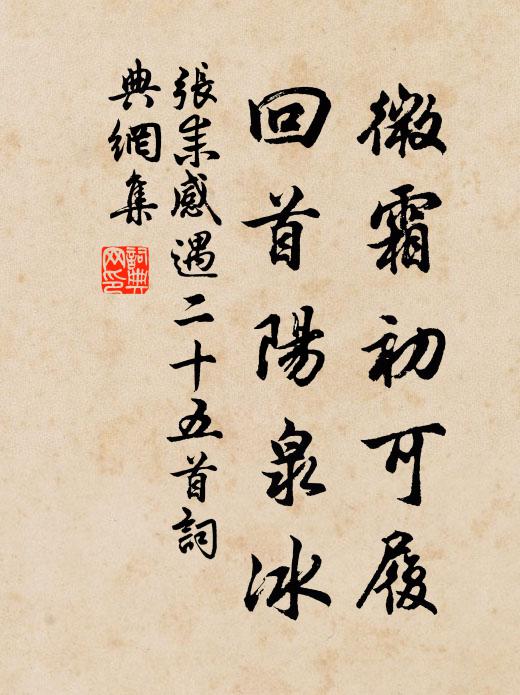 微霜初可履
回首陽泉冰
張耒感遇二十五首詞
典網集
詞典網印